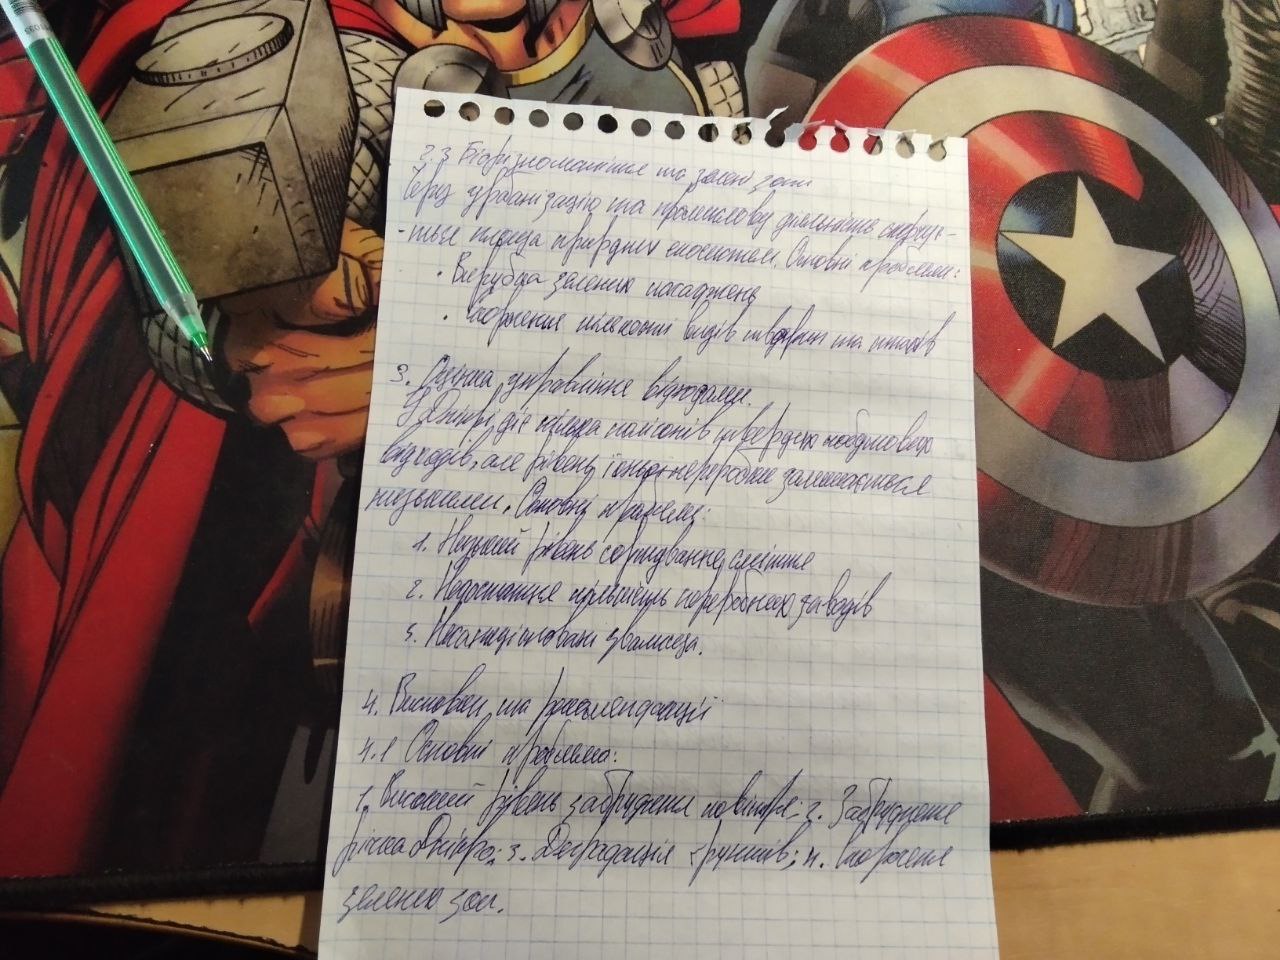 2.3 Біорізноманіття та зелені зони
Через урбанізацію та промислову діяльність скорочу-
-ться площа природних екосистем. Основні проблеми:
• Вирубка зелених насаджень
• Скорочення кількості видів тварин та птахів
3. Оцінка управління відходами.
У Дніпрі діє кілька полігонів твердих побутових
відходів, але рівень їхньої переробки залишається
низьким. Основні проблеми:
1. Низький рівень сортування сміття
2. Недостатня кількість переробних заводів
3. Несанкціоновані звалища.
4. Висновки та рекомендації
4.1 Основні проблеми:
1. Високий рівень забруднення повітря; 2. Забруднення
річки Дніпро; 3. Деградація ґрунтів; 4. Скорочення
зелених зон.